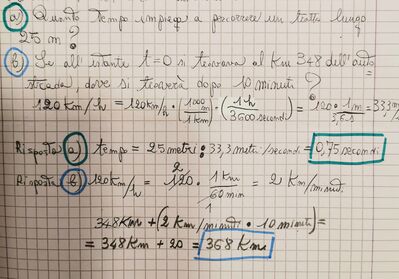 a) Quanto tempo impiega a percorrere un tratto lungo
25 m ?
b) Se all'istante t=0 si trovava al Km 348 dell'auto
strada, dove si troverà dopo 10 minuti ?
120 Km/h = 120 Km/h · (1000 m / 1 Km) · (1 h / 3600 secondi) = 120 · 1 m / 3,6 s = 33,3 m/
Risposta a) tempo = 25 metri : 33,3 metri/secondi = 0,75 secondi
Risposta b) 120 Km/h = 120 2 · 1 Km / 60 min = 2 Km/minuti
348 Km + (2 Km/minuti · 10 minuti) =
= 348 Km + 20 = 368 Km